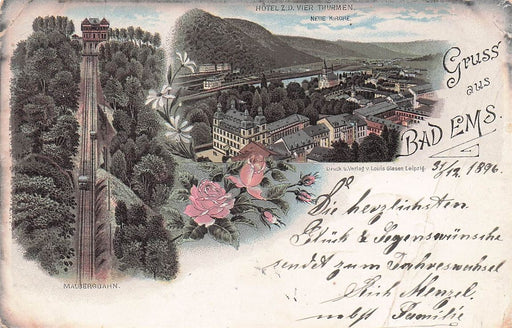 HÔTEL Z.D. VIER THÜRMEN.
NEUE KIRCHE.
Gruss
aus
BAD EMS.
Druck u. Verlag v. Louis Glaser Leipzig.
31/12 1896.
Die herzlichsten
Glück & Segenswünsche
sendet zum Jahreswechsel
Menzel.
nebst Familie
MALBERGBAHN.